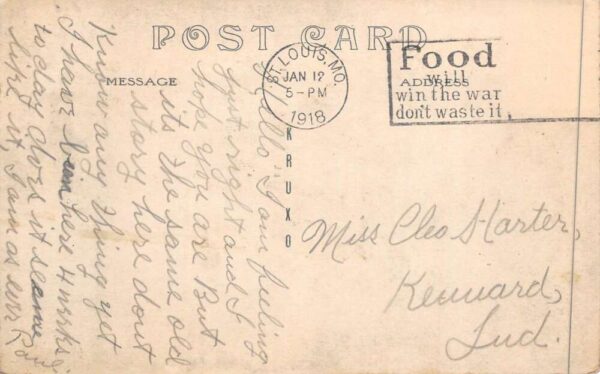 POST CARD
MESSAGE
ADDRESS
ST. LOUIS, MO.
JAN 12
5-PM
1918
Food
will
win the war
don't waste it.
KRUXO
Hello I am feeling
just right and I
hope you are But
its the same old
story here dont
Know any thing yet
I have been here 4 weeks
to day does it seame
like it, I am as ever
Miss Cleo Harter,
Kennard,
Ind.